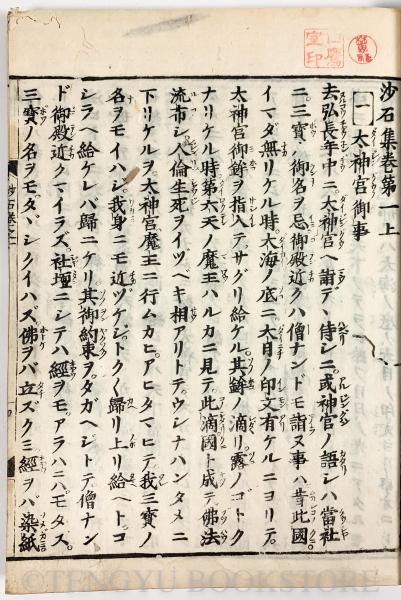 沙石集巻第一上
一 太神宮御事
去弘長年中ニ太神宮ヘ詣デ、侍シニ或神官ノ語シハ當社
ニ三寳ノ御名ヲ忌御殿近クハ僧ナンドモ詣ヌ事ハ昔此國
イマダ無リケル時大海ノ底ニ大日ノ印文有ケルニヨリテ
太神宮御鉾ヲ指入テサグリ給ケル其鉾ノ滴リ露ノゴトク
ナリケル時第六天ノ魔王ハルカニ見テ此滴國ト成テ佛法
流布シ人倫生死ヲイヅベキ相アリトテウシナハンタメニ
下リケルヲ太神宮魔王ニ行ムカヒアヒタマヒテ我三寳ノ
名ヲモイハジ我身ニモ近ヅケジトクトク歸リ上リ給ヘトコ
シラヘ給ケレバ歸ニケリ其御約束ヲタガヘジトテ僧ナン
ド御殿近クマイラズ社壇ニシテハ經ヲモアラハニハモタズ
三寳ノ名ヲモタヾシクイハズ佛ヲバ立スクミ經ヲバ染紙
沙石巻之一
©TENGYU BOOKSTORE